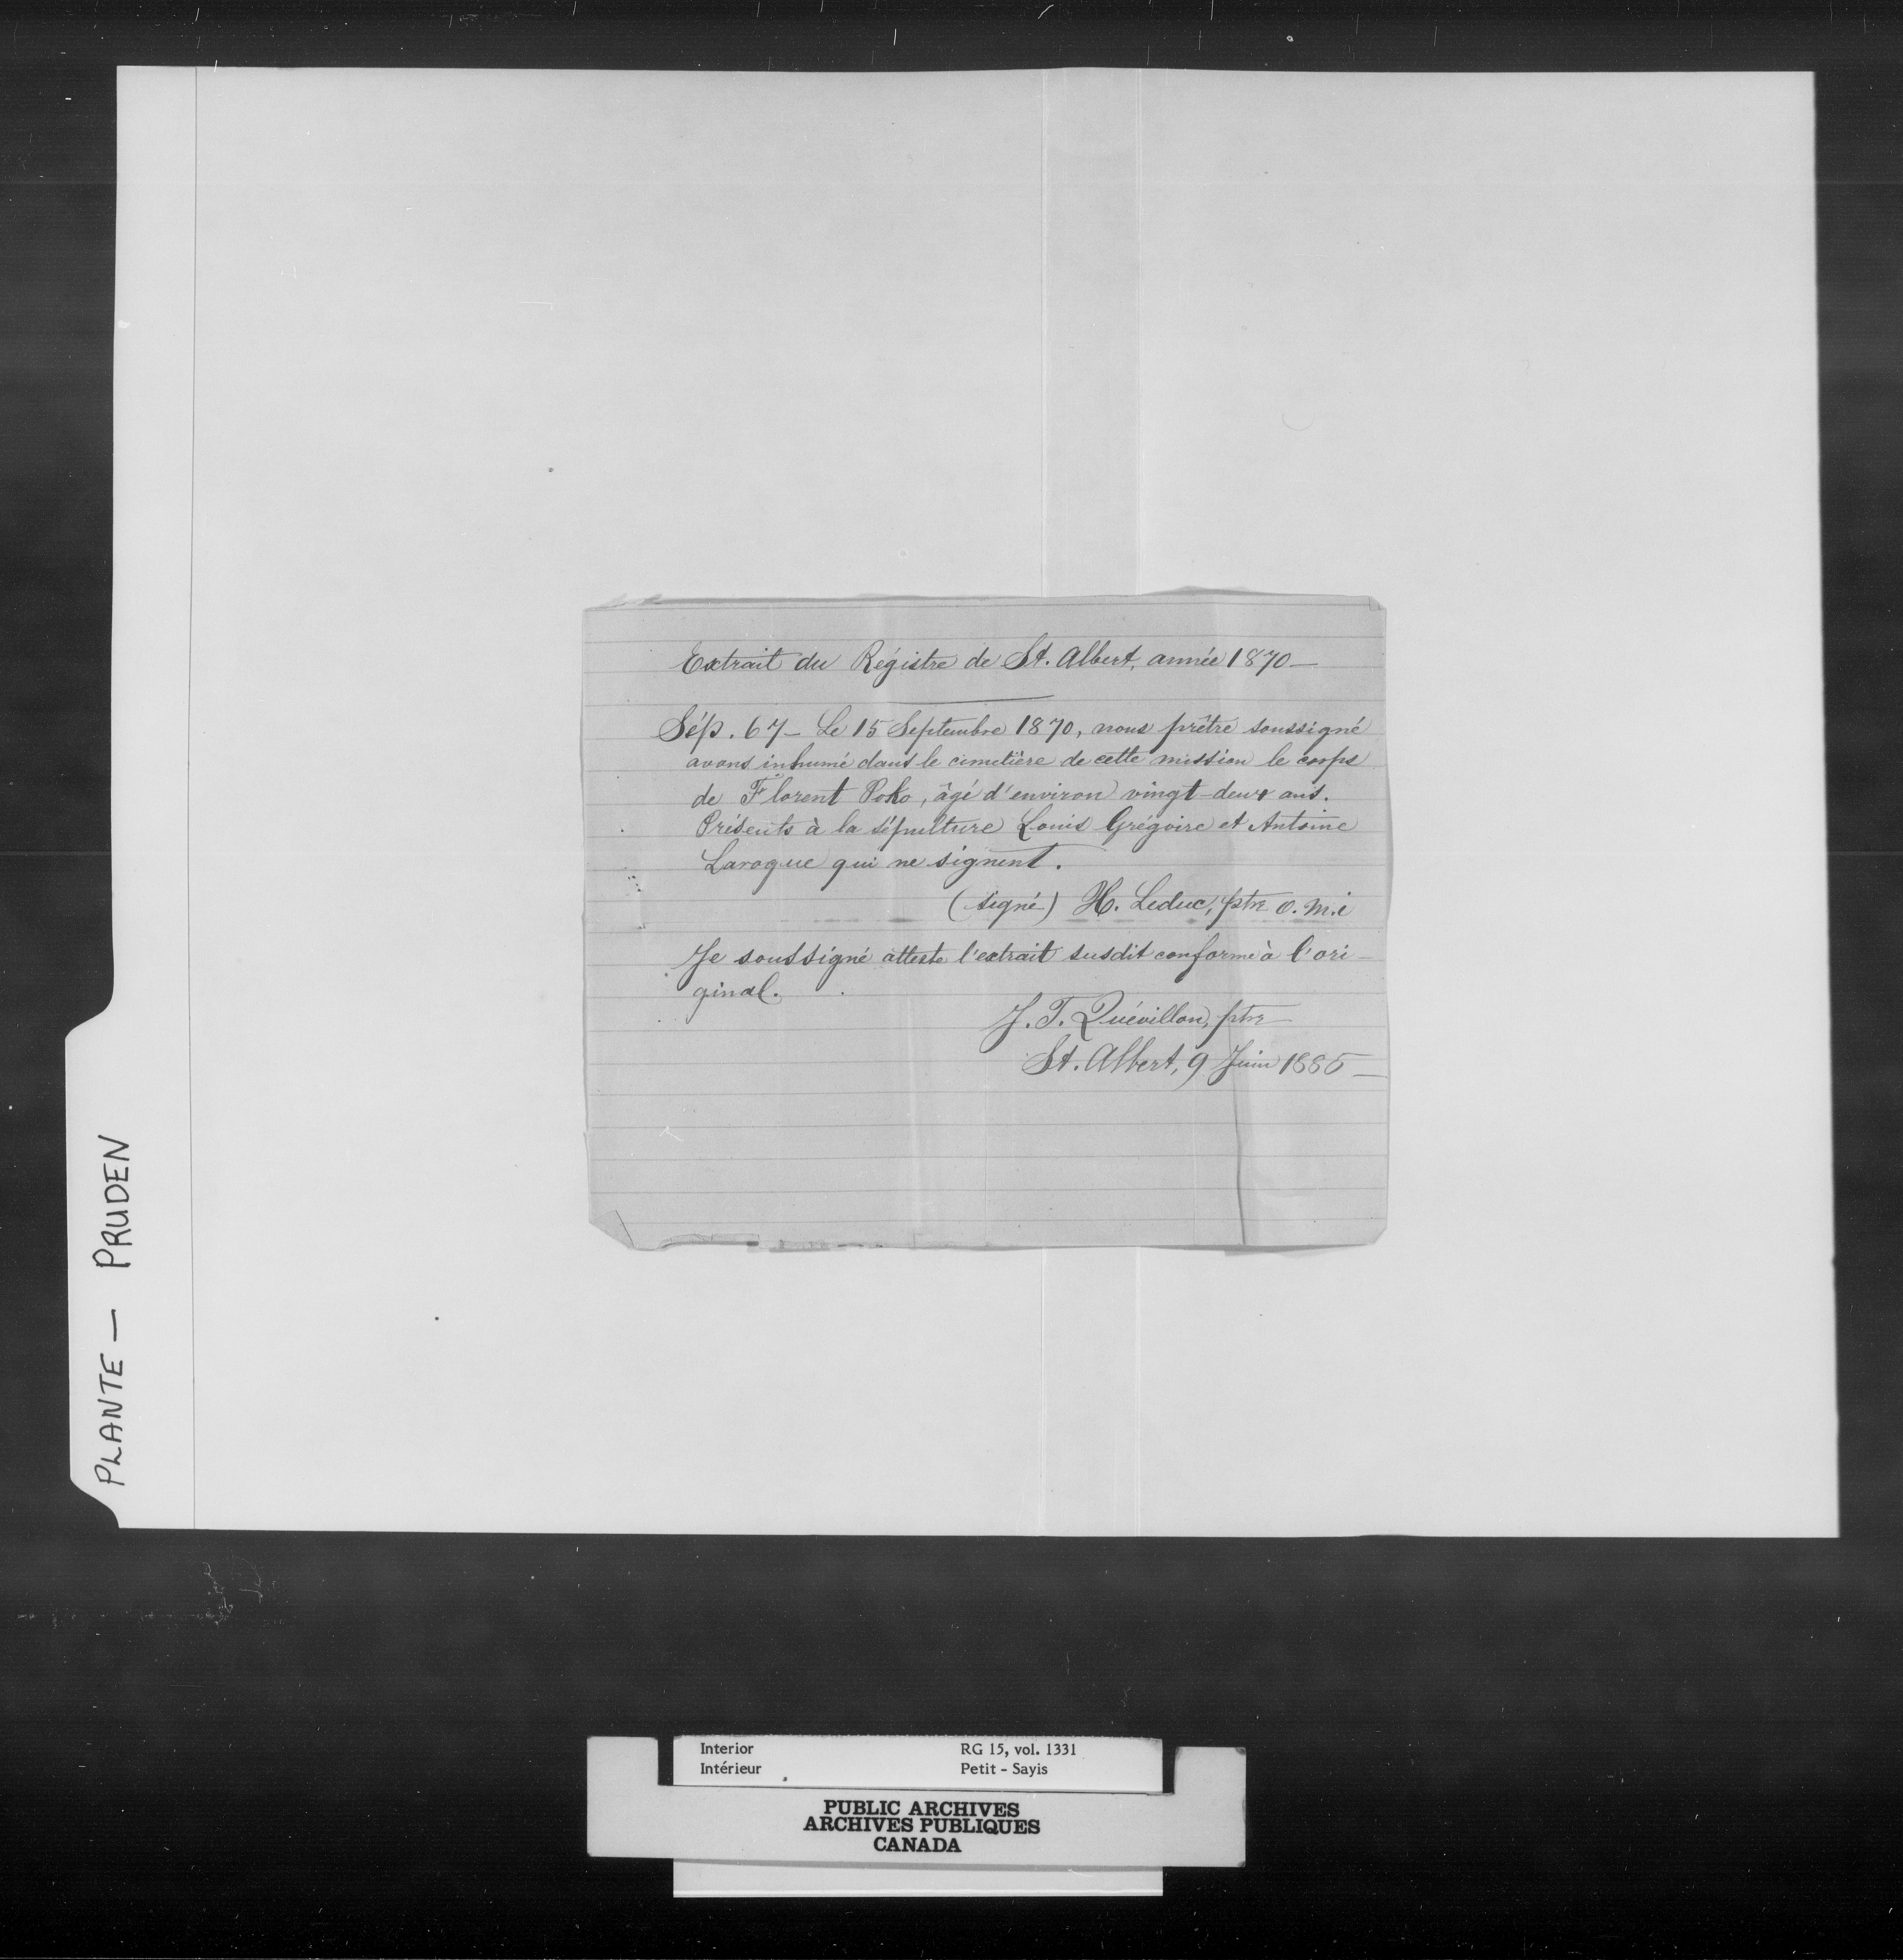 Extrait du Régistre de St. Albert, année 1870 —
Sép. 67 — Le 15 Septembre 1870, nous prêtre soussigné
avons inhumé dans le cimetière de cette mission le corps
de Florent Poko, âgé d'environ vingt-deux ans.
Présents à la sépulture Louis Grégoire et Antoine
Laroque qui ne signent.
(signé) H. Leduc, ptre o.m.i
Je soussigné atteste l'extrait susdit conforme à l'ori-
ginal.
J. T. Quévillon, ptre
St. Albert, 9 Juin 1885 —
PLANTE — PRUDEN
Interior RG 15, vol. 1331
Intérieur Petit - Sayis
PUBLIC ARCHIVES
ARCHIVES PUBLIQUES
CANADA